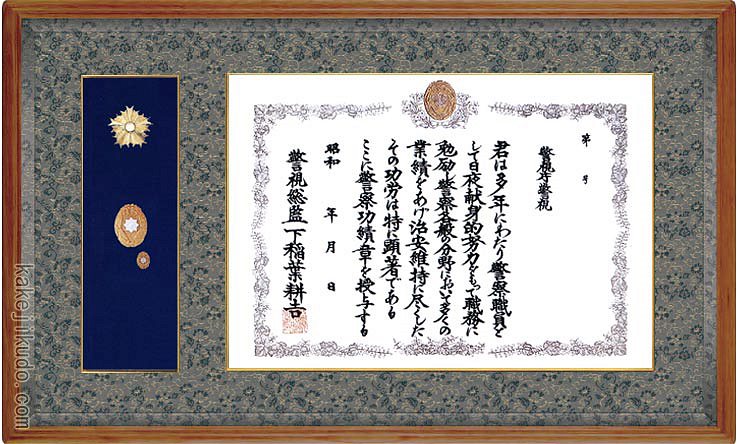 第　号
警視庁警視
君は多年にわたり警察職員と
して日夜献身的努力をもつて職務に
勉励し警察各般の分野において多くの
業績をあげ治安維持に尽くした
その功労は特に顕著である
ここに警察功績章を授与する
昭和　年　月　日
警視総監 下稲葉耕吉
kakejikudo.com